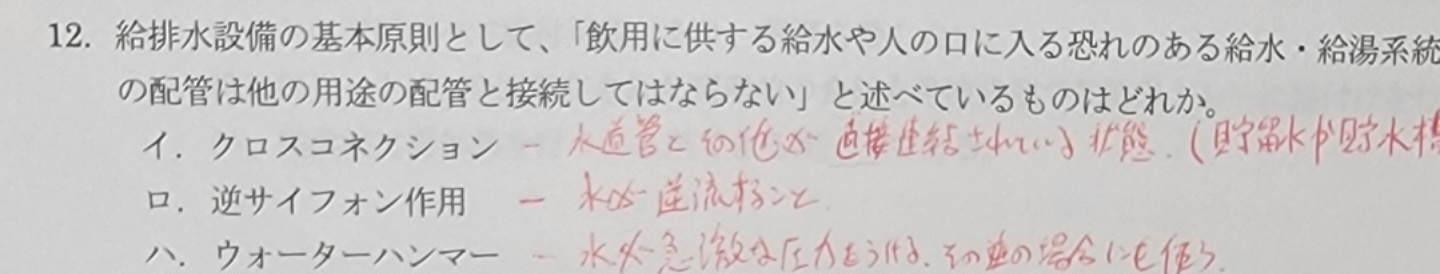 12. 給排水設備の基本原則として、「飲用に供する給水や人の口に入る恐れのある給水・給湯系統
の配管は他の用途の配管と接続してはならない」と述べているものはどれか。
イ．クロスコネクション － 水道管とその他が直接連結されている状態.（貯留水や貯水槽
ロ．逆サイフォン作用 － 水が逆流すること
ハ．ウォーターハンマー － 水が急激な圧力をうける. その逆の場合にも使う.